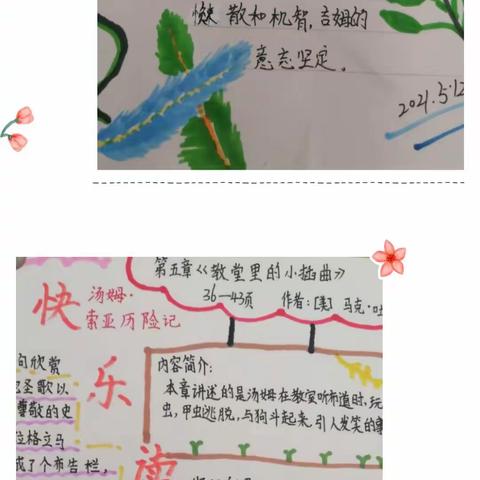 懒散和机智,吉姆的
意志坚定。
2021.5.12
第五章《教堂里的小插曲》
36—43页 作者:[美] 马克·吐
快乐读
汤姆·
索亚历险记
句欣赏
圣歌以
尊敬的史
拉格立马
成了个布告栏,
内容简介:
本章讲述的是汤姆在教家听布道时,玩
虫,甲虫逃脱,与狗斗起来,引人发笑的